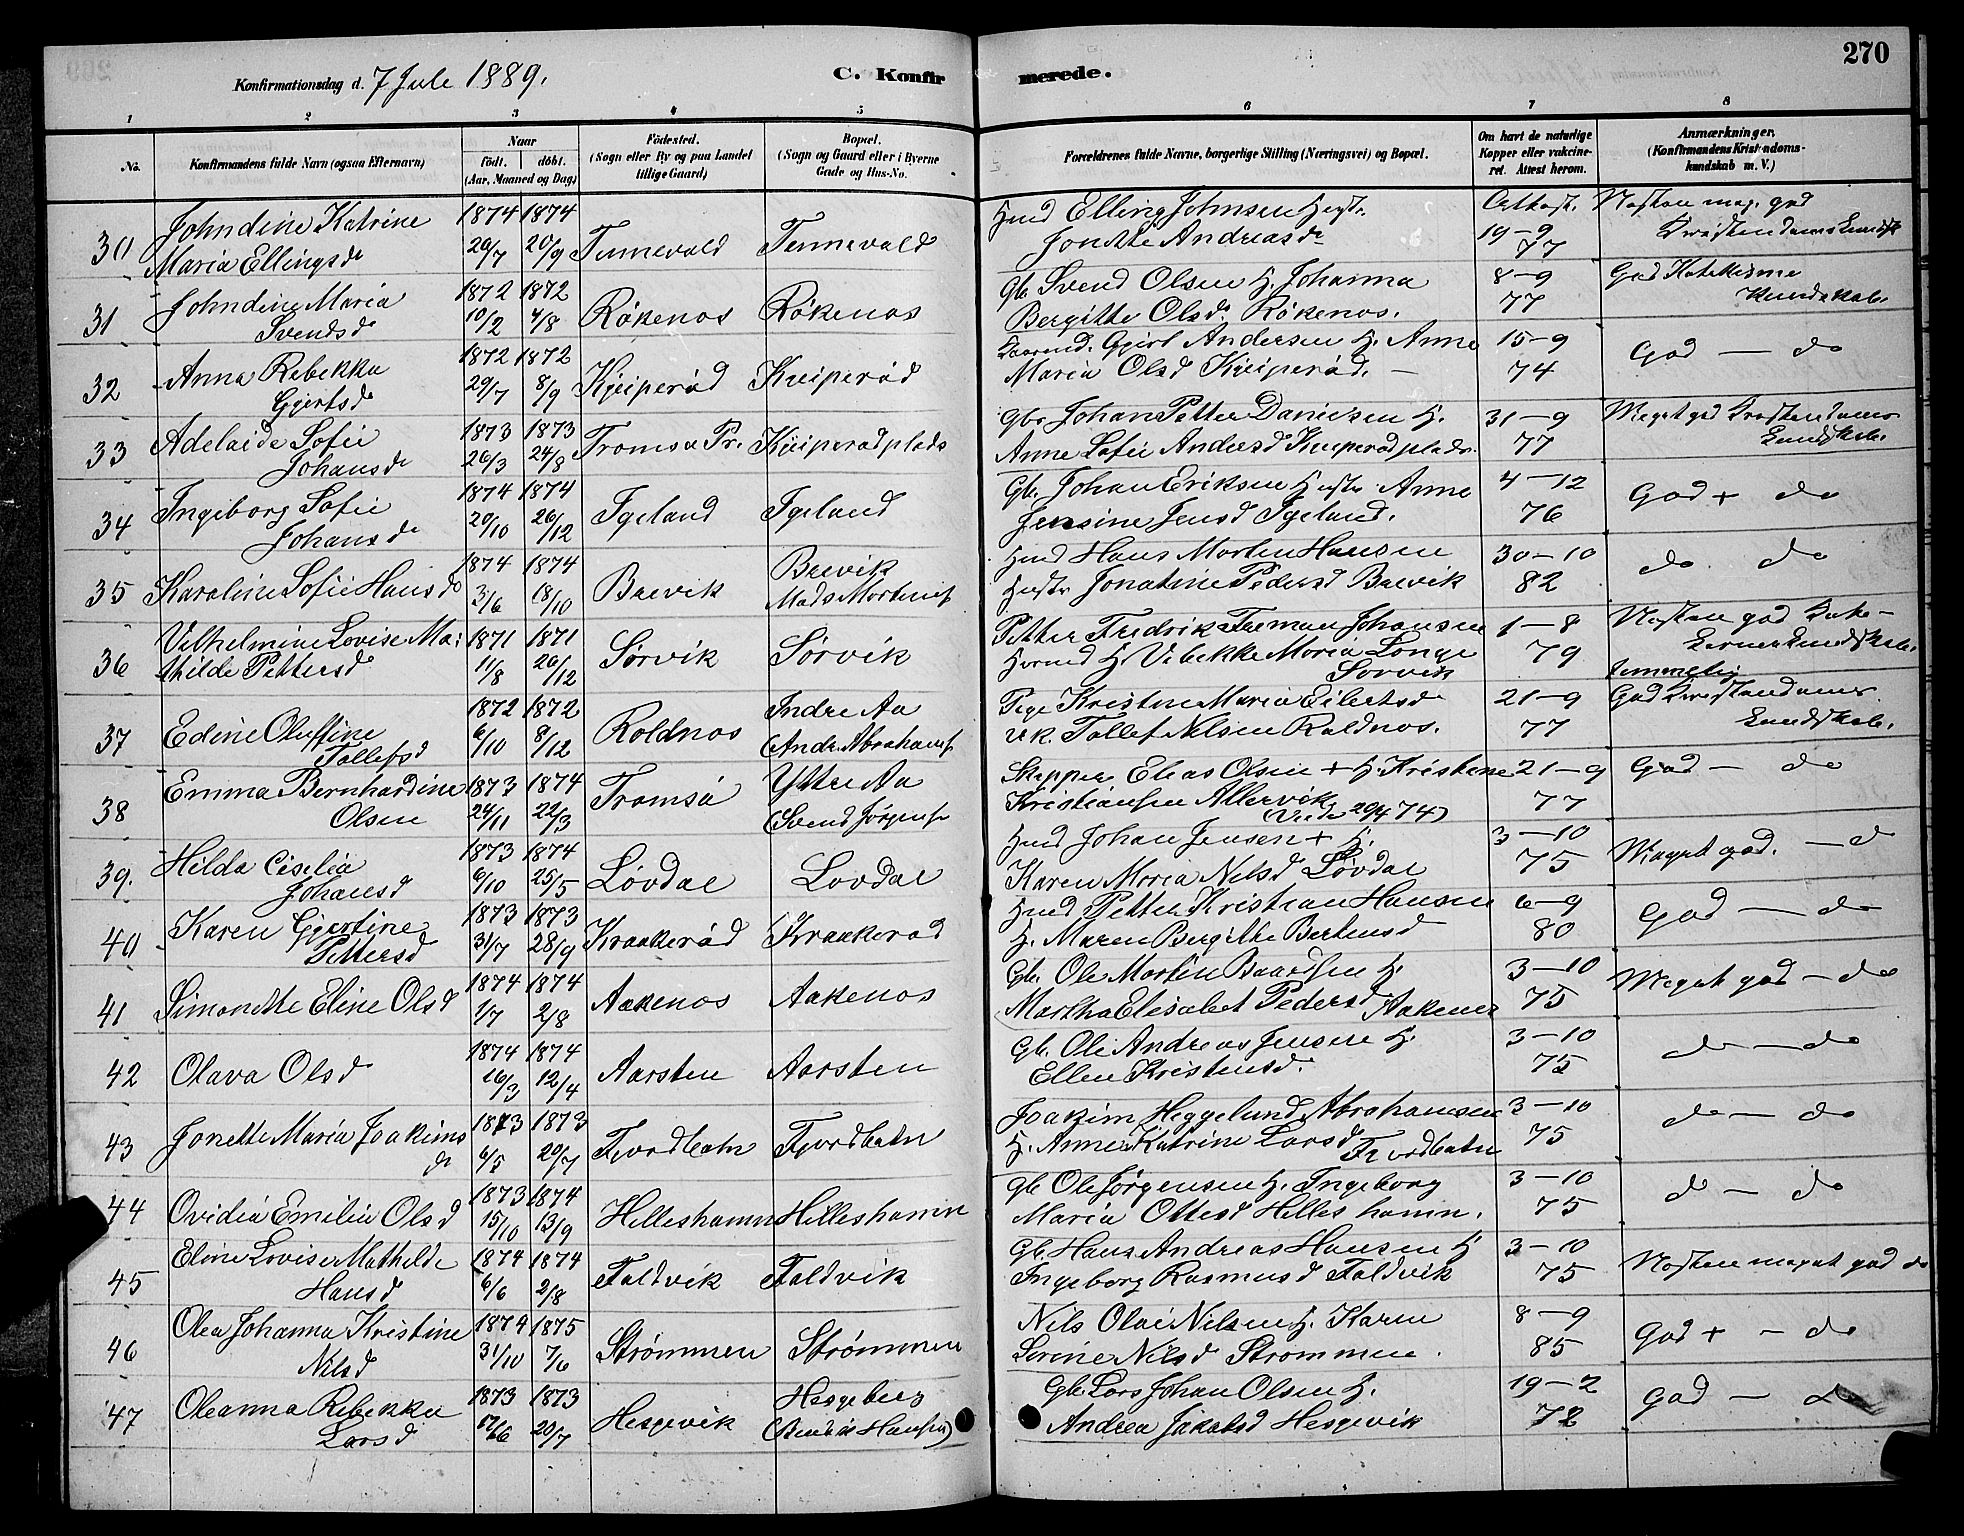 270
Konfirmationsdag d. 7 Jule 1889.
C. Konfirmerede.
1 2 3 4 5 6 7 8
No.
Konfirmandens fulde Navn (ogsaa Efternavn)
Naar
födt. döbt.
(Aar, Maaned og Dag)
Födested.
(Sogn eller By og paa Landet
tillige Gaard)
Bopæl.
(Sogn og Gaard eller i Byerne
Gade og Hus-No.
Forældrenes fulde Navne, borgerlige Stilling (Næringsvei) og Bopæl.
Om havt de naturlige
Kopper eller vakcine-
ret. Attest herom.
Anmærkninger.
(Konfirmandens Kristendoms-
kundskab m. V.)
30 Johndine Katrine 1874 1874 Tennevold Tennevold Elling Johnsen 19-9
Maria Ellingsd 29/7 20/9 Jonette Andreasd 77
31 Johndine Maria 1872 1872 Rökenos Rökenos Gb. Svend Olsen H. Johanna 8-9 God Katekisme
Svendsd 10/2 4/8 Bergitte Olsd. Rökenos. 77 Kundskab.
32 Anna Rebekka 1872 1872 Kjeiperöd Kjeiperöd Gjert Andersen H. Anne 15-9 God - do
Gjertsd 29/7 8/9 Maria Olsd Kjeiperöd. 74
33 Adelaide Sofie 1873 1873 Tromsö Pr. Kjeiperödplads Gb. Johan Petter Danielsen H. 31-9 Meget god Kristendoms
Johansd 26/3 24/8 Anne Sofie Andersd Kjeiperödplads 77 Kundskab.
34 Ingeborg Sofie 1874 1874 Igeland Igeland Gb. Johan Eriksen Hustr. Anne 4-12 God + do
Johansd 20/10 26/12 Jensine Jensd Igeland. 76
35 Karoline Sofie Hansd 1874 1874 Brevik Brevik Hans Morten Hansen 30-10 do do
3/6 18/10 Hustr Jonatine Pedersd Brevik 82
36 Vilhelmine Lovise Ma- 1871 1871 Sörvik Sörvik Petter Fredrik Johansen 1-8 Nesten god
thilde Pettersd 11/8 26/12 H. Vibekke Maria Lange Sorvik 79
37 Edine Oluffine 1872 1872 Roldnos Indre Aa Pige Kristine Maria Eilertsd 21-9 God Kristendoms
Tollefsd 6/10 8/12 Tollef Nilsen Roldnos. 77 Kundskab.
38 Emma Bernhardine 1873 1874 Tromsö Yttre Aa Skipper Elias Olsen + H. Kristine 21-9 God - do
Olsen 24/11 22/3 (Svend Jörgens Kristiansen Allervik 77
39. Hilda Cesilia 1873 1874 Lövdal Lovdal Johan Jensen + H. 3-10 Meget god. - d
Johansd 6/10 25/5 Karen Maria Nilsd Lövdal 75
40 Karen Gjertine 1873 1873 Kraakeröd Kraakeröd Petter Kristian Hansen 6-9 God - do
Pettersd 31/7 28/9 H. Maren Bergitte Bertensd 80
41 Simonette Eline Olsd 1874 1874 Aakenos Aakenos Gb. Ole Martin Baardsen H. 3-10 Meget god - do
1/7 2/8 Martha Elisabet Pedersd Aakenes 75
42 Olava Olsd 1874 1874 Aarsten Aarsten Gb. Ole Andreas Jensen H. 3-10 do - do
16/3 12/4 Ellen Kristensd. 75
43 Jonette Maria Joakims 1873 1873 Fjordbotn Fjordbotn Joakim Heggelund Abrahamsen 3-10 do - do
d 6/5 20/7 H. Anne Katrine Larsd Fjordbotn 75
44 Ovidia Emilie Olsd 1873 1874 Hilleshamn Hilleshamn Gb Ole Jörgensen H. Ingeborg 3-10 do - do
15/10 13/9 Maria Ottesd Hilleshamn. 75
45 Eline Lovise Mathilde 1874 1874 Foldvik Foldvik Gb. Hans Andreas Hansen H 3-10 Nesten meget god do
Hansd 6/6 2/8 Ingeborg Rasmusd Foldvik 75
46 Olea Johanna Kristine 1874 1875 Strömmen Strömmen Nils Olai Nilsen H. Karen 8-9 God + - do
Nilsd 31/10 7/6 Serine Nilsd Strommen. 85
47 Oleanna Rebekka 1873 1873 Hesgevik Hesgeberg Gb. Lars Johan Olsen H. 19-2 God - d
Larsd 17/6 20/7 Andrea Jakobsd Hesgevik 72